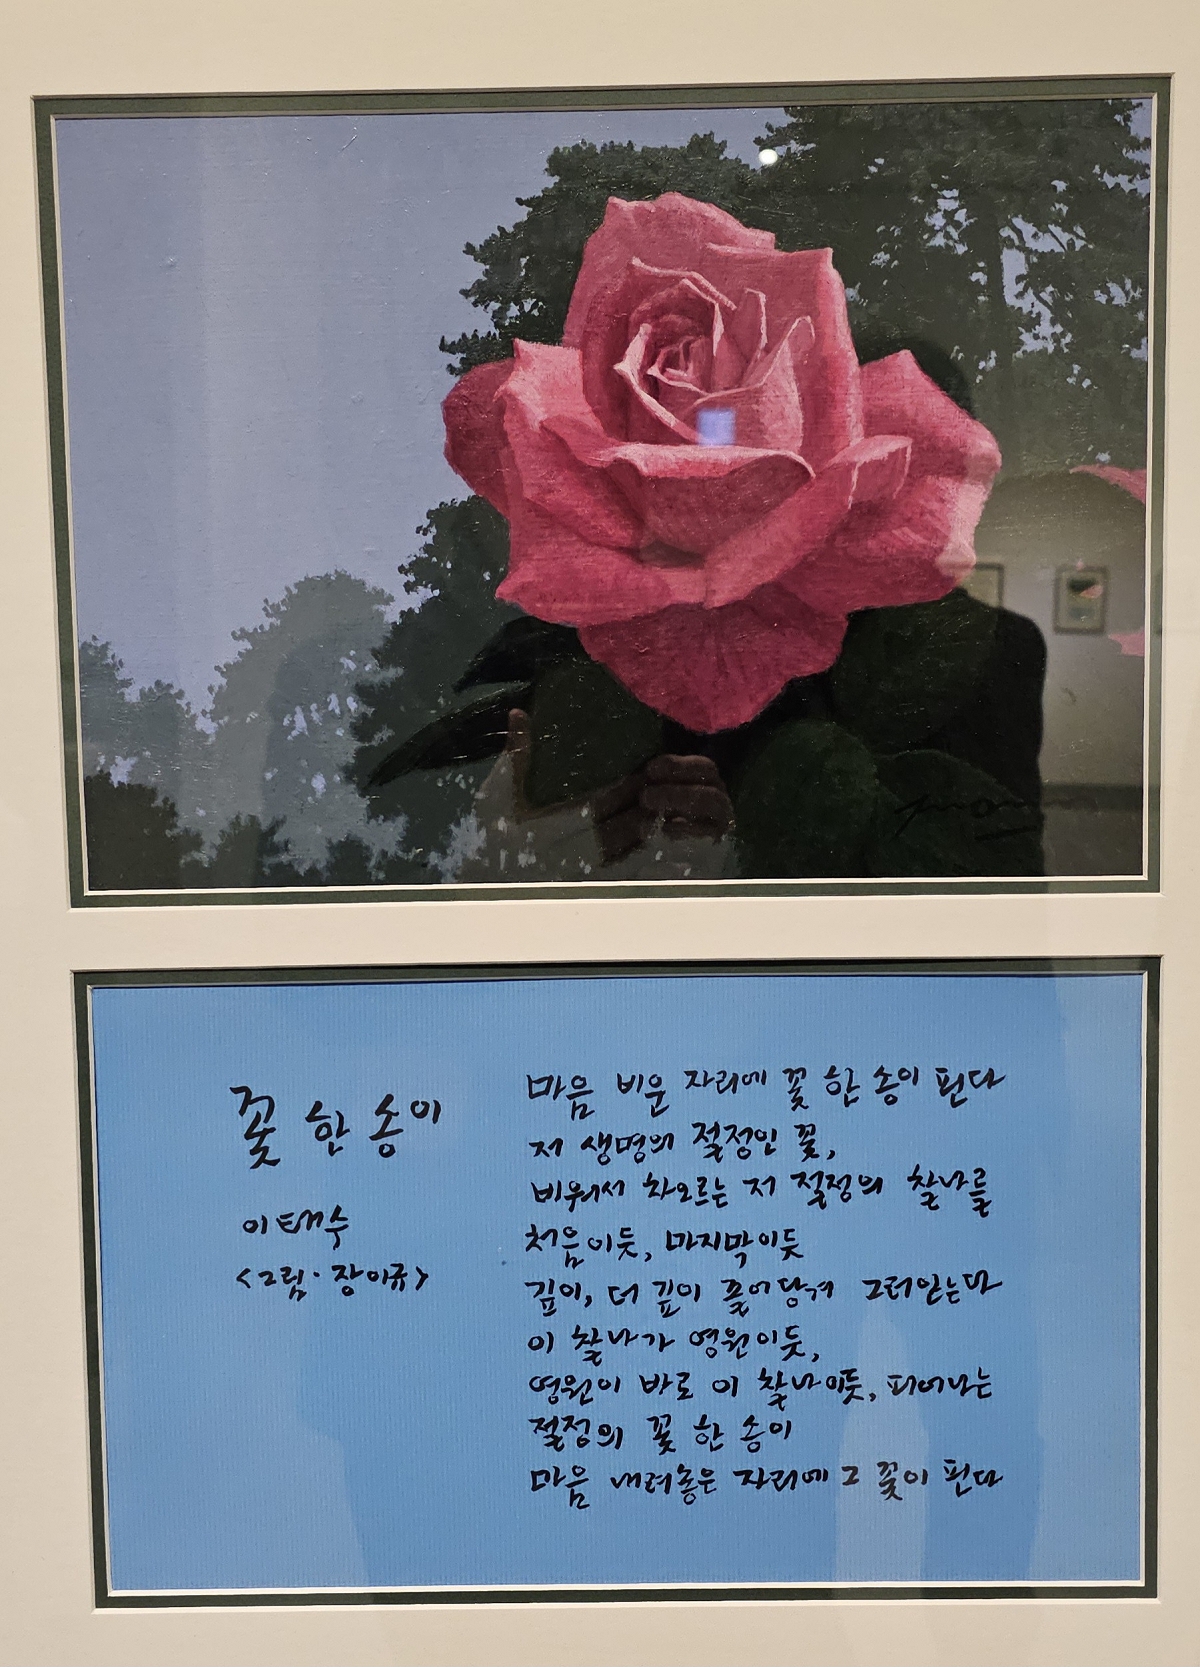 꽃 한 송이
이태수
<그림·장이규>
마음 비운 자리에 꽃 한 송이 핀다
저 생명의 절정인 꽃,
비워서 차오르는 저 절정의 찰나를
처음이듯, 마지막이듯
깊이, 더 깊이 끌어당겨 그러안는다
이 찰나가 영원이듯,
영원이 바로 이 찰나이듯, 피어나는
절정의 꽃 한 송이
마음 내려놓은 자리에 그 꽃이 핀다